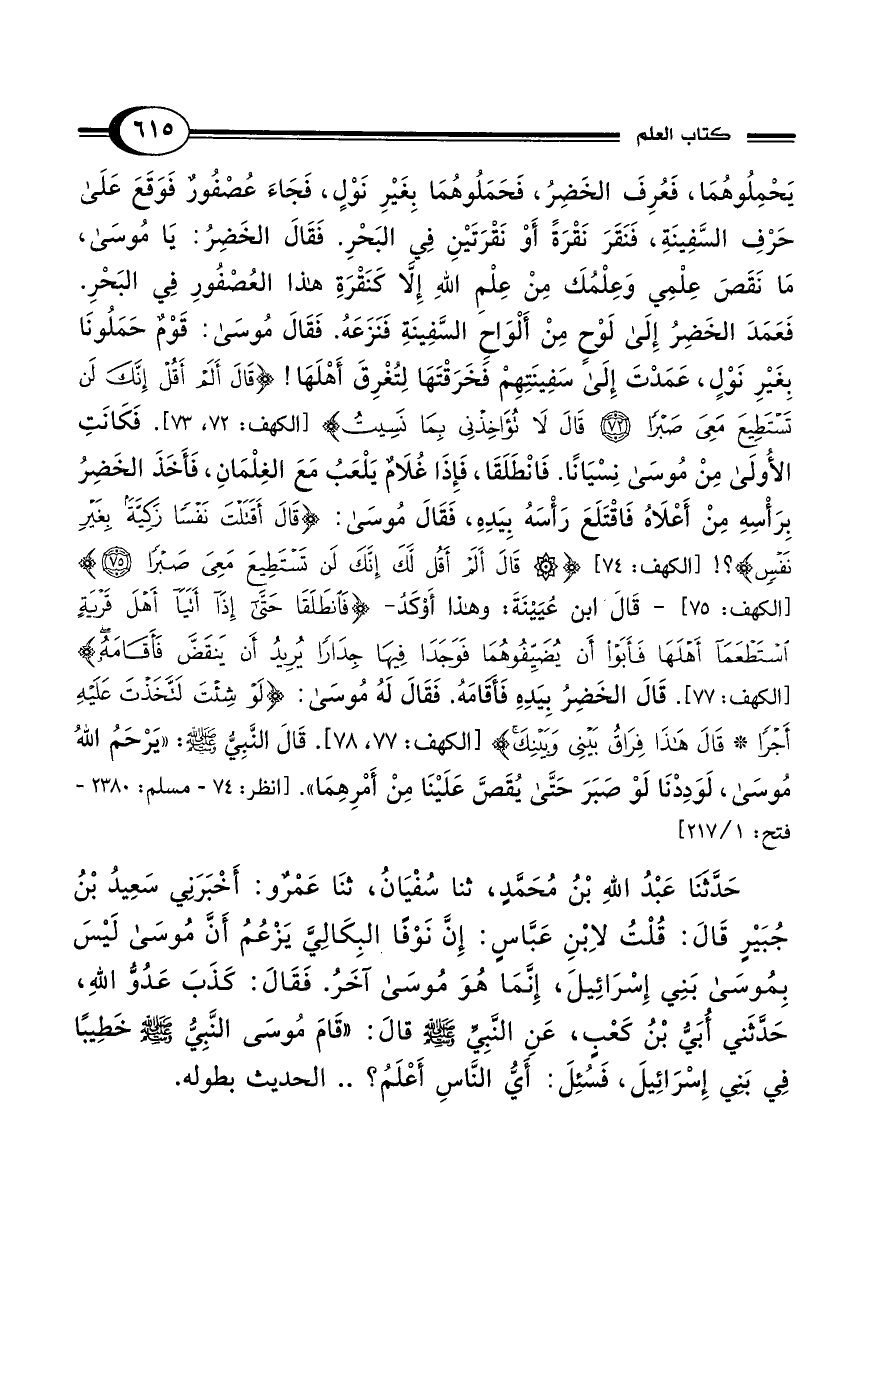 كتاب العلم ٦١٥
يَحْمِلُوهُمَا، فَعُرِفَ الخَضِرُ، فَحَمَلُوهُمَا بِغَيْرِ نَوْلٍ، فَجَاءَ عُصْفُورٌ فَوَقَعَ عَلَىٰ
حَرْفِ السَّفِينَةِ، فَنَقَرَ نَقْرَةً أَوْ نَقْرَتَيْنِ فِي البَحْرِ. فَقَالَ الخَضِرُ: يَا مُوسَىٰ،
مَا نَقَصَ عِلْمِي وَعِلْمُكَ مِنْ عِلْمِ اللهِ إِلَّا كَنَقْرَةِ هذا العُصْفُورِ فِي البَحْرِ.
فَعَمَدَ الخَضِرُ إِلَىٰ لَوْحٍ مِنْ أَلْوَاحِ السَّفِينَةِ فَنَزَعَهُ. فَقَالَ مُوسَىٰ: قَوْمٌ حَمَلُونَا
بِغَيْرِ نَوْلٍ، عَمَدْتَ إِلَىٰ سَفِينَتِهِمْ فَخَرَقْتَهَا لِتُغْرِقَ أَهْلَهَا! ﴿قَالَ أَلَمْ أَقُلْ إِنَّكَ لَن
تَسْتَطِيعَ مَعِىَ صَبْرًا ٧٢ قَالَ لَا تُؤَاخِذْنِى بِمَا نَسِيتُ﴾ [الكهف: ٧٢، ٧٣]. فَكَانَتِ
الأُولَىٰ مِنْ مُوسَىٰ نِسْيَانًا. فَانْطَلَقَا، فَإِذَا غُلَامٌ يَلْعَبُ مَعَ الغِلْمَانِ، فَأَخَذَ الخَضِرُ
بِرَأْسِهِ مِنْ أَعْلَاهُ فَاقْتَلَعَ رَأْسَهُ بِيَدِهِ، فَقَالَ مُوسَىٰ: ﴿قَالَ أَقَتَلْتَ نَفْسًا زَكِيَّةً بِغَيْرِ
نَفْسٍ﴾؟! [الكهف: ٧٤] ﴿۞ قَالَ أَلَمْ أَقُل لَّكَ إِنَّكَ لَن تَسْتَطِيعَ مَعِىَ صَبْرًا ٧٥﴾
[الكهف: ٧٥] - قَالَ ابن عُيَيْنَةَ: وهذا أَوْكَدُ- ﴿فَانطَلَقَا حَتَّىٰ إِذَا أَتَيَا أَهْلَ قَرْيَةٍ
اسْتَطْعَمَا أَهْلَهَا فَأَبَوْا أَن يُضَيِّفُوهُمَا فَوَجَدَا فِيهَا جِدَارًا يُرِيدُ أَن يَنقَضَّ فَأَقَامَهُ﴾
[الكهف: ٧٧]. قَالَ الخَضِرُ بِيَدِهِ فَأَقَامَهُ. فَقَالَ لَهُ مُوسَىٰ: ﴿لَوْ شِئْتَ لَتَّخَذْتَ عَلَيْهِ
أَجْرًا * قَالَ هَٰذَا فِرَاقُ بَيْنِى وَبَيْنِكَ﴾ [الكهف: ٧٧، ٧٨]. قَالَ النَّبِيُّ ﷺ: «يَرْحَمُ اللهُ
مُوسَىٰ، لَوَدِدْنَا لَوْ صَبَرَ حَتَّىٰ يُقَصَّ عَلَيْنَا مِنْ أَمْرِهِمَا». [انظر: ٧٤ - مسلم: ٢٣٨٠ -
فتح: ١/ ٢١٧]
حَدَّثَنَا عَبْدُ اللهِ بْنُ مُحَمَّدٍ، ثنا سُفْيَانُ، ثنَا عَمْرٌو: أَخْبَرَنِي سَعِيدُ بْنُ
جُبَيْرٍ قَالَ: قُلْتُ لاِبْنِ عَبَّاسٍ: إِنَّ نَوْفًا البِكَالِيَّ يَزْعُمُ أَنَّ مُوسَىٰ لَيْسَ
بِمُوسَىٰ بَنِي إِسْرَائِيلَ، إِنَّمَا هُوَ مُوسَىٰ آخَرُ. فَقَالَ: كَذَبَ عَدُوُّ اللهِ،
حَدَّثَنِي أُبَيُّ بْنُ كَعْبٍ، عَنِ النَّبِيِّ ﷺ قالَ: «قَامَ مُوسَى النَّبِيُّ ﷺ خَطِيبًا
فِي بَنِي إِسْرَائِيلَ، فَسُئِلَ: أَيُّ النَّاسِ أَعْلَمُ؟ .. الحديث بطوله.